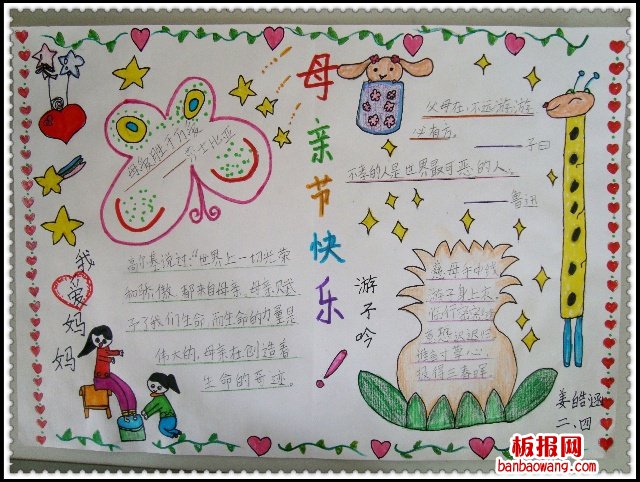 母亲节快乐！
莎士比亚
父母在,不远游,游
必有方。
——子曰
不孝的人是世界最可恶的人。
——鲁迅
我爱妈妈
高尔基说过:“世界上一切光荣
和骄傲,都来自母亲,母亲赋
予了我们生命,而生命的力量是
伟大的,母亲在创造着
生命的奇迹。
游不吟
慈母手中线
游子身上衣。
临行密密缝
意恐迟迟归
谁言寸草心
报得三春晖
姜皓涵
二.四
板报网
banbaowang.com